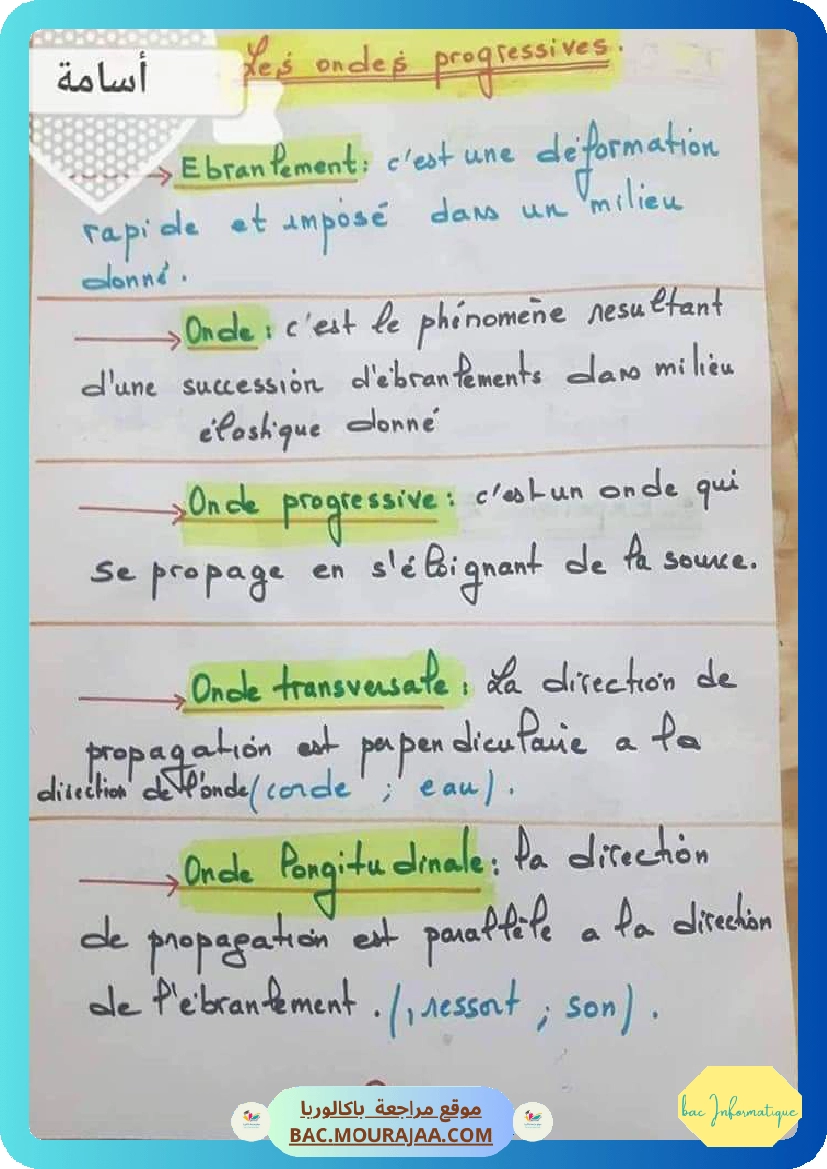 Les ondes progressives.
أسامة
Ebranlement: c'est une déformation
rapide et imposé dans un milieu
donné.
Onde: c'est le phénomène resultant
d'une succession d'ébranlements dans milieu
élastique donné
Onde progressive: c'est un onde qui
se propage en s'éloignant de la source.
Onde transversale: La direction de
propagation est perpendiculaire a la
direction de l'onde (corde ; eau).
Onde longitudinale: la direction
de propagation est parallèle a la direction
de l'ébranlement. (, ressort ; son).
موقع مراجعة باكالوريا
BAC.MOURAJAA.COM
bac Informatique